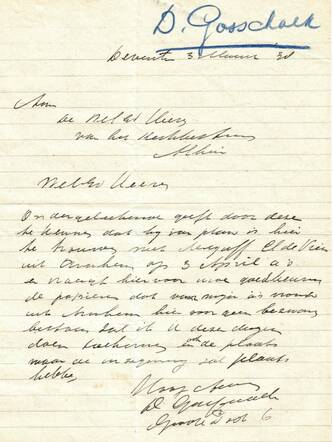 D. Gosschalk
Deventer 3 Maart 30
Aan
De WelEd Heeren
van het Kerkbestuur
Alhier
WelEd Heeren
Ondergeteekende geeft door deze
te kennen dat hij van plan is hier
te trouwen met Mejuff El de Vries
uit Arnhem op 3 April a s
en vraagt hiervoor uwe goedkeuring
de papieren dat van mijn aanst. vrouw
uit Arnhem hier voor geen bezwaar
bestaan zal ik U deze dagen
doen toekomen en de plaats
waar de inzegening zal plaats
hebben
Hoogachtend
D Gosschalk
Groote Poot 6